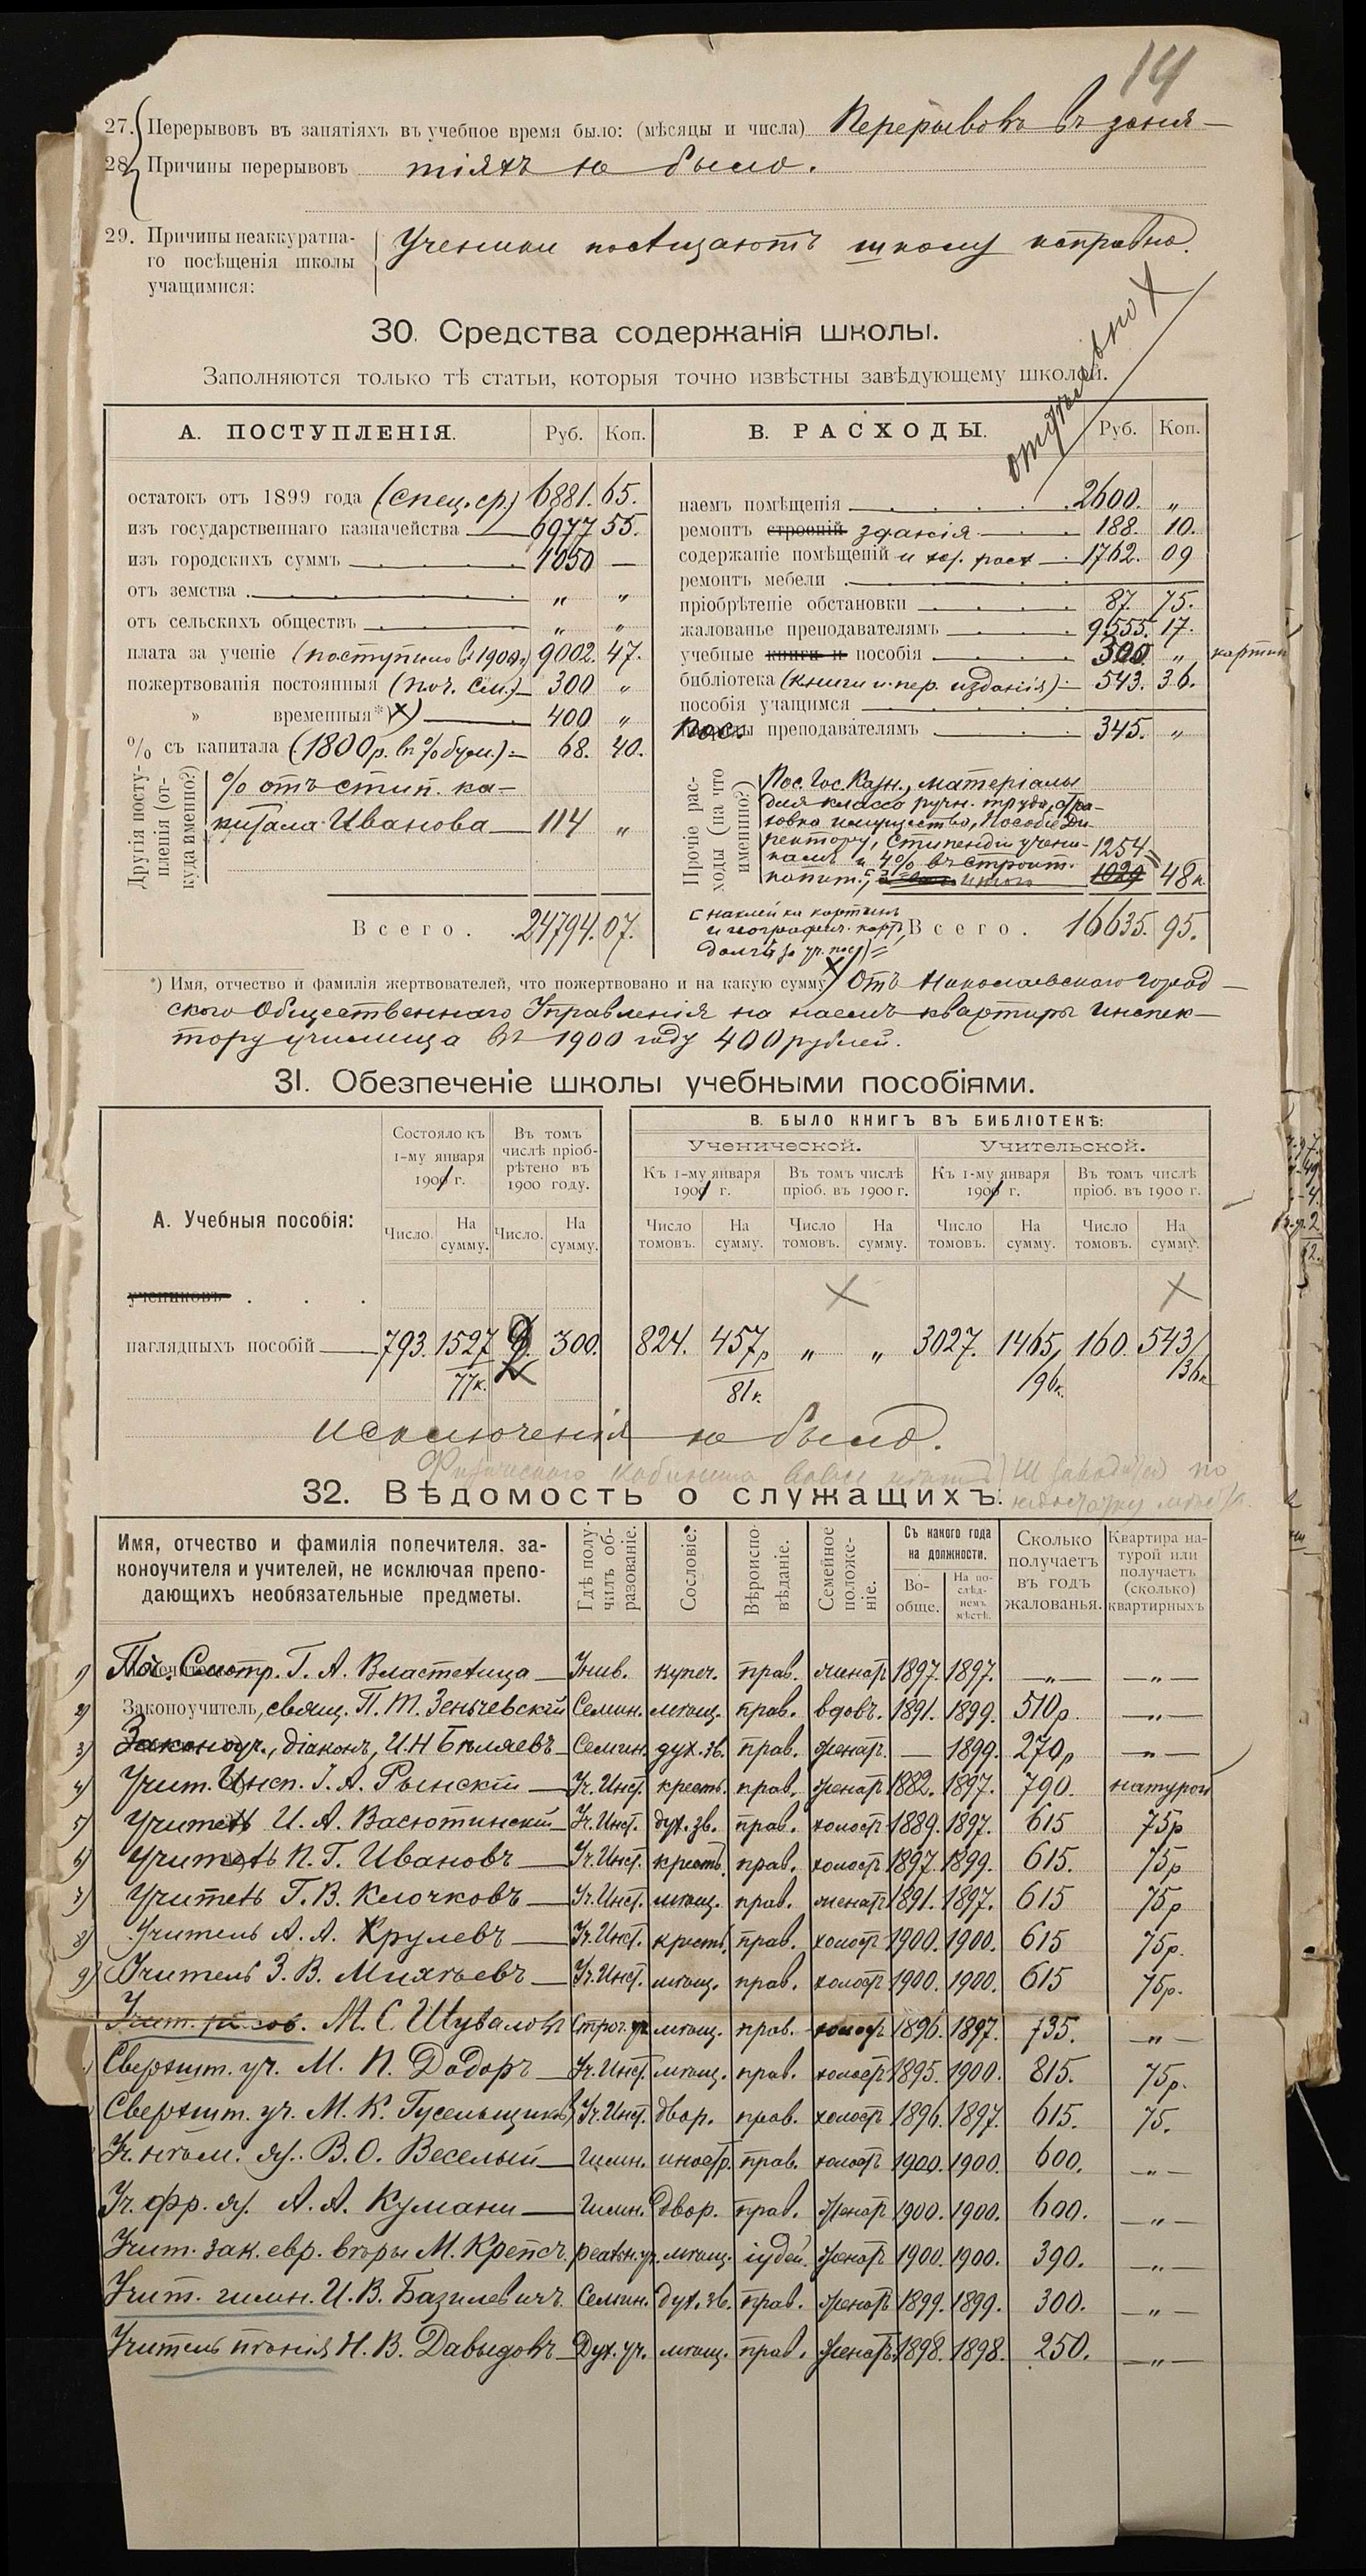 14
27. Перерывовъ въ занятіяхъ въ учебное время было: (мѣсяцы и числа) Перерывовъ въ заня-
28. Причины перерывовъ тіяхъ не было.
29. Причины неаккуратна-
го посѣщенія школы
учащимися:
Ученики посѣщаютъ школу исправно.
30. Средства содержанія школы.
Заполняются только тѣ статьи, которыя точно извѣстны завѣдующему школой.
А. ПОСТУПЛЕНІЯ. Руб. Коп.
остатокъ отъ 1899 года (спец. ср.) 6881. 65.
изъ государственнаго казначейства 6977 55.
изъ городскихъ суммъ 1050 —
отъ земства „ „
отъ сельскихъ обществъ „ „
плата за ученіе (поступило въ 1900 г.) 9002. 47.
пожертвованія постоянныя (поч. см.) 300 „
» временныя*) 400 „
% съ капитала (1800 р. въ % бум.) 68. 40.
Другія посту-
пленія (от-
куда именно?)
% отъ стип. ка-
питала Иванова 114 „
Всего. 24794. 07.
В. РАСХОДЫ. Руб. Коп.
отдѣльно X
наемъ помѣщенія 2600. „
ремонтъ строеній зданія 188. 10.
содержаніе помѣщеній и хоз. расх 1762. 09
ремонтъ мебели
пріобрѣтеніе обстановки 87. 75.
жалованье преподавателямъ 9555. 17.
учебные книги и пособія 300 „ картин
библіотека (книги и пер. изданія) 543. 36.
пособія учащимся
Пос. преподавателямъ 345. „
Прочіе рас-
ходы (на что
именно?)
Пос. Гос. Казн., матеріалы
для класса ручн. труда, стра-
ховка имущества, пособіе ди-
ректору, стипендіи учени- 1254
камъ и 4% въ строит.
капит., 1029 48 к
наклейка картинъ
и географич. картъ,
Всего. 16635. 95.
*) Имя, отчество и фамилія жертвователей, что пожертвовано и на какую сумму X) Отъ Николаевскаго Город-
ского Общественнаго Управленія на наемъ квартиры инспек-
тору училища въ 1900 году 400 рублей.
31. Обезпеченіе школы учебными пособіями.
А. Учебныя пособія:
Состояло къ
1-му января
1901 г.
Въ томъ
числѣ пріоб-
рѣтено въ
1900 году.
Число. На сумму. Число. На сумму.
учениковъ . . .
наглядныхъ пособій 793. 1527 300.
77 к.
В. БЫЛО КНИГЪ ВЪ БИБЛІОТЕКѢ:
Ученической. Учительской.
Къ 1-му января 1901 г. Въ томъ числѣ пріоб. въ 1900 г. Къ 1-му января 1901 г. Въ томъ числѣ пріоб. въ 1900 г.
Число томовъ. На сумму. Число томовъ. На сумму. Число томовъ. На сумму. Число томовъ. На сумму.
X X
824. 457 р „ „ 3027. 1465 160. 543
81 к. 96 к. 36 к
Исключенія не было.
Физическаго кабинета вовсе
32. Вѣдомость о служащихъ.
Имя, отчество и фамилія попечителя, за-
коноучителя и учителей, не исключая препо-
дающихъ необязательные предметы.
Гдѣ полу-
чилъ об-
разованіе.
Сословіе.
Вѣроиспо-
вѣданіе.
Семейное
положе-
ніе.
Съ какого года
на должности.
Во-
обще.
На по-
слѣд-
немъ
мѣстѣ.
Сколько
получаетъ
въ годъ
жалованья.
Квартира на-
турой или
получаетъ
(сколько)
квартирныхъ
1) Поч. Смотр. Г. А. Властелица Унив. купеч. прав. женат 1897. 1897. — „ — — „ —
2) Законоучитель, свящ. П. Т. Зеньчевскій Семин. мѣщ. прав. вдовъ. 1891. 1899. 510 р. — „ —
3) Законоуч., діаконъ, И. Н Бѣляевъ Семин. дух. зв. прав. женат. — 1899. 270 р — „ —
4) Учит. Инсп. І. А. Рынскій Уч. Инст. крест. прав. женат 1882. 1897. 790. натурой
5) Учитель И. А. Васютинскій Уч. Инст. дух. зв. прав. холост 1889. 1897. 615 75 р
6) Учитель П. Г. Ивановъ Уч. Инст. крест. прав. холост 1897. 1899. 615. 75 р
7) Учитель Г. В. Клочковъ Уч. Инст. мѣщ. прав. женат 1891. 1897. 615 75 р
8) Учитель А. А. Крулевъ Уч. Инст. крест. прав. холост 1900. 1900. 615 75 р.
9) Учитель З. В. Михѣевъ Уч. Инст. мѣщ. прав. холост 1900. 1900. 615 75 р.
Учит. рисов. М. С. Шуваловъ Строг. уч мѣщ. прав. холост 1896. 1897. 735. — „ —
Сверхшт. уч. М. П. Додоръ Уч. Инст. мѣщ. прав. холост 1895. 1900. 815. 75 р.
Сверхшт. уч. М. К. Гусельщиковъ Уч. Инст. двор. прав. холост 1896. 1897. 615. 75.
Уч. нѣм. яз. В. О. Веселый Гимн. иностр. прав. холост 1900. 1900. 600. — „ —
Уч. фр. яз. А. А. Кумани Гимн. двор. прав. женат 1900. 1900. 600. — „ —
Учит. зак. евр. вѣры М. Крепсъ реальн. уч. мѣщ. іудей. женат 1900. 1900. 390. — „ —
Учит. гимн. И. В. Базилевичъ Семин. дух. зв. прав. женатъ 1899. 1899. 300. — „ —
Учитель пѣнія Н. В. Давыдовъ Дух. уч. мѣщ. прав. женатъ 1898. 1898. 250. — „ —